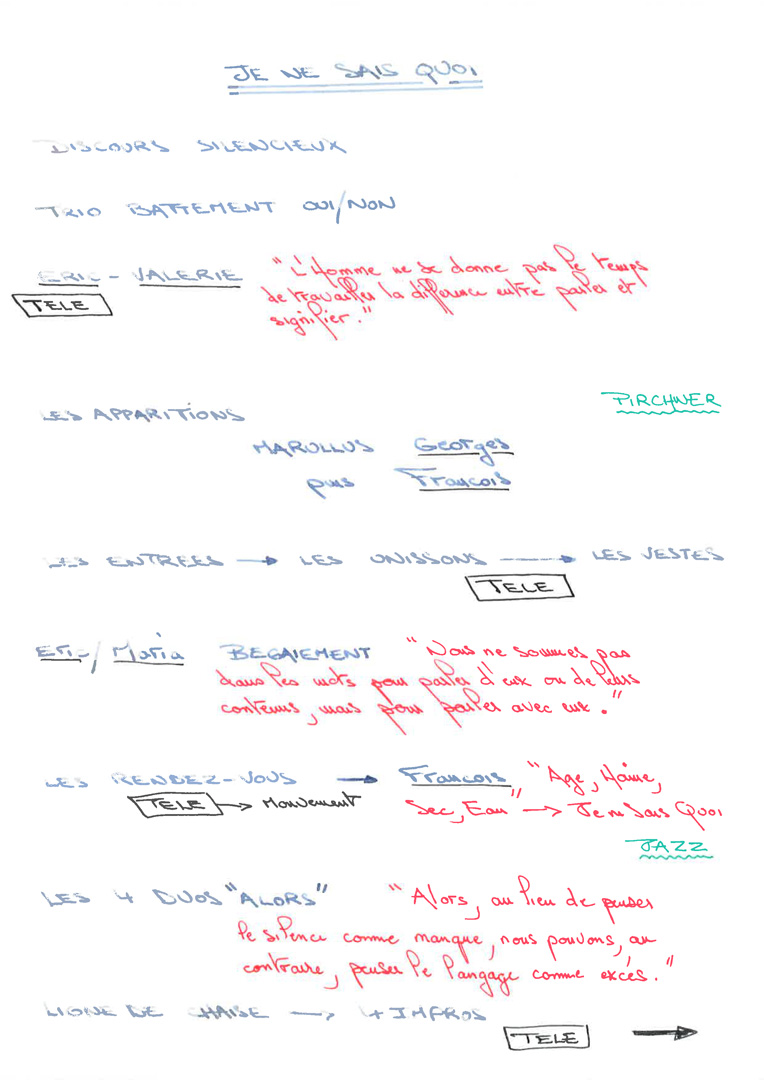 JE NE SAIS QUOI
DISCOURS SILENCIEUX
TRIO BATTEMENT OUI/NON
ERIC - VALERIE "L'Homme ne se donne pas le temps
TELE de travailler la différence entre parler et
signifier."
PIRCHNER
LES APPARITIONS
MARULLUS Georges
puis Francois
LES ENTREES → LES UNISSONS → LES VESTES
TELE
Eric/Maria BEGAIEMENT "Nous ne sommes pas
dans les mots pour parler d'eux ou de leurs
contenus, mais pour parler avec eux."
LES RENDEZ-VOUS → Francois "Age, Haine,
TELE → Mouvement Sec, Eau" → Je ne Sais Quoi
JAZZ
LES 4 DUOS "ALORS" "Alors, au lieu de penser
le silence comme manque, nous pouvons, au
contraire, penser le langage comme excés."
LIGNE DE CHAISE → 4 IMPROS
TELE →